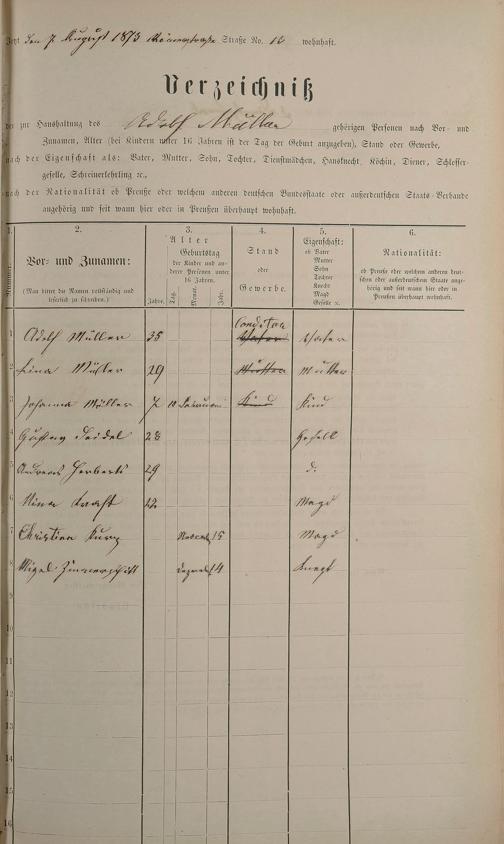 Jetzt den 7 August 1873 Straße No. 12 wohnhaft.
Verzeichniß
der zur Haushaltung des Adolf Müller gehörigen Personen nach Vor- und
Zunamen, Alter (bei Kindern unter 16 Jahren ist der Tag der Geburt anzugeben), Stand oder Gewerbe,
nach der Eigenschaft als: Vater, Mutter, Sohn, Tochter, Dienstmädchen, Hausknecht, Köchin, Diener, Schlosser-
geselle, Schreinerlehrling ꝛc.,
nach der Nationalität ob Preuße oder welchem anderen deutschen Bundesstaate oder außerdeutschen Staats-Verbande
angehörig und seit wann hier oder in Preußen überhaupt wohnhaft.
1. 2. 3. 4. 5. 6.
Nummer.
Vor- und Zunamen:
(Man bittet die Namen vollständig und
leserlich zu schreiben.)
Alter
Geburtstag
der Kinder und an-
derer Personen unter
16 Jahren.
Jahre. Tag. Monat. Jahr.
Stand
oder
Gewerbe.
Eigenschaft:
ob Vater
Mutter
Sohn
Tochter
Knecht
Magd
Geselle ꝛc.
Nationalität:
ob Preuße oder welchem anderen deut-
schen oder außerdeutschen Staate ange-
hörig und seit wann hier oder in
Preußen überhaupt wohnhaft.
1 Adolf Müller 35 Conditor Vater Vater
2 Lina Müller 29 Mutter Mutter
3 Johanna Müller 7 10 Kind Kind
4 Gustav Seidel 28 Gesell
5 Andreas Herberts 29 d.
6 Mina 22 Magd
7 Christina Kurz 15 Magd
8 14 Knegt
9
10
11
12
13
14
15
16